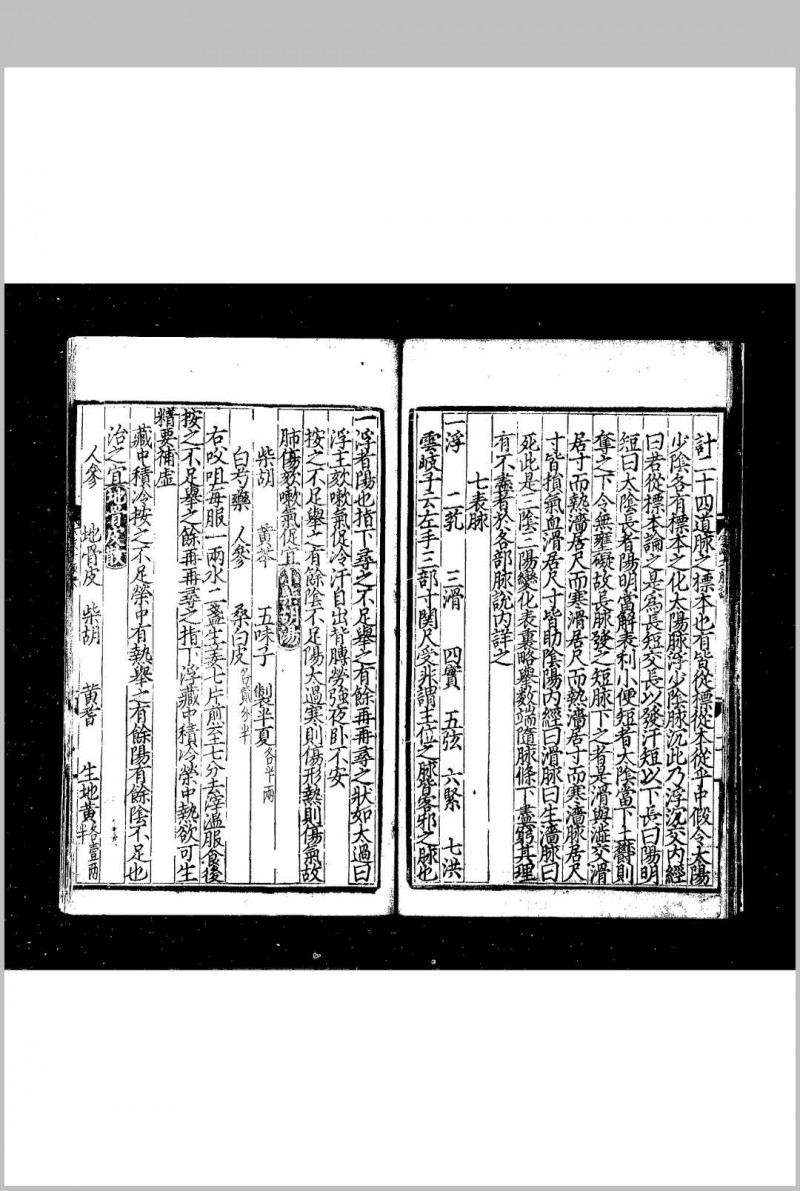 計二十四道脉之標本也有皆從標從本從乎中假令太陽
少陰各有標本之化太陽脉浮少陰脉沉此乃浮沉交内經
曰若從標本論之是爲長短交長以發汗短以下長曰陽明
短曰太陰長者陽明當解表利小便短者太陰當下土鬱則
奪之下令無壅礙故長脉發之短脉下之者是滑與澁交滑
居寸而熱濇居尺而寒滑居尺而熱濇居寸而寒濇脉居尺
寸皆損氣血滑居尺寸皆助陰陽内經曰滑脉曰生濇脉曰
死此是三陰三陽變化表裏略舉數端隨脉條下盡窮其理
有不盡者於各部脉說内詳之
七表脉
一浮 二芤 三滑 四實 五弦 六緊 七洪
雲岐子云左手三部寸関尺受非謂主位之脉皆客邪之脉也
一浮者陽也指下尋之不足舉之有餘再再尋之狀如太過曰
浮主欬嗽氣促冷汗自出背膊勞強夜卧不安
按之不足舉之有餘陰不足陽大過寒則傷形熱則傷氣故
肺傷欬嗽氣促宜小柴胡湯
柴胡 黄芩 五味子 製半夏各半兩
白芍藥 人參 桑白皮各貳分半
右㕮咀每服一兩水二盞生姜七片煎至七分去滓溫服食後
按之不足舉之餘再再尋之指下浮藏中積冷榮中熱欲可生
精要補虚
藏中積冷按之不足榮中有熱舉之有餘陽有餘陰不足也
治之宜地骨皮散
人參 地骨皮 柴胡 黄耆 生地黄各壹兩半